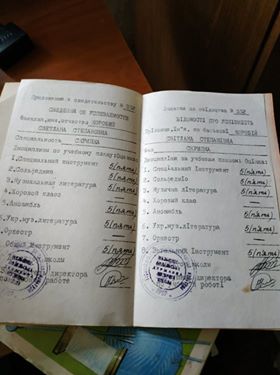 Приложение к свидетельству № 332
СВЕДЕНИЯ ОБ УСПЕВАЕМОСТИ
Фамилия, имя, отчество КОРОВИЙ
СВЕТЛАНА СТЕПАНОВНА
Специальность СКРИПКА
Дисциплины по учебному плану
1. Специальный инструмент 5(пять)
2. Сольфеджио 5(пять)
3. Музыкальная литература 5(пять)
4. Хоровой класс —
5. Ансамбль 5(пять)
6. Укр. муз. литература 5(пять)
7. Оркестр —
Общий инструмент 5(пять)
школы
директора
работе
Додаток до свідоцтва № 332
ВІДОМОСТІ ПРО УСПІШНІСТЬ
Прізвище, ім'я, по батькові КОРОВІЙ
СВІТЛАНА СТЕПАНІВНА
Фах СКРИПКА
Дисципліни за учбовим планом Оцінка:
1. Спеціальний інструмент 5(п'ять)
2. Сольфеджіо 5(п'ять)
3. Музична література 5(п'ять)
4. Хоровий клас —
5. Ансамбль 5(п'ять)
6. Укр. муз. література 5(п'ять)
7. Оркестр —
8. Загальний інструмент 5(п'ять)
школи
директора
роботі